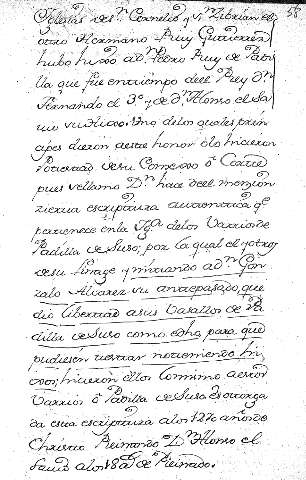 58
Iglesias de Sn Cornelio y Sn Zibrian el
otro Hermano Ruy Gutierrez
hubo hixo a Dn Pedro Ruy de Padi
lla que fue en tiempo de el Rey Dn
Fernando el 3º y de Dn Alonso el Sa
vio su hixo. Uno de los quales prin
cipes dieron a este honor o lo hicieron
Potestad de su Comezo o Corte
pues se llama Dn hace de el mencion
cierta escriptura autentica qe
pertenece en la Yga de los Varrio de
Padilla de Suso, por la qual el y otros
de su linage y mirando a Dn Gon
zalo Alvarez su antepasado, que
dio libertad a sus Vasallos de Pa
dilla de Suso como dho, para que
pudiesen testar no teniendo hi
xos, hicieron ellos lo mismo a este
Varrio o Padilla de Suso es otorga
da esta escriptura a los 1270 años de
Christo Reinando Dn Alonso el
Savio a los 18 as de Reinado.